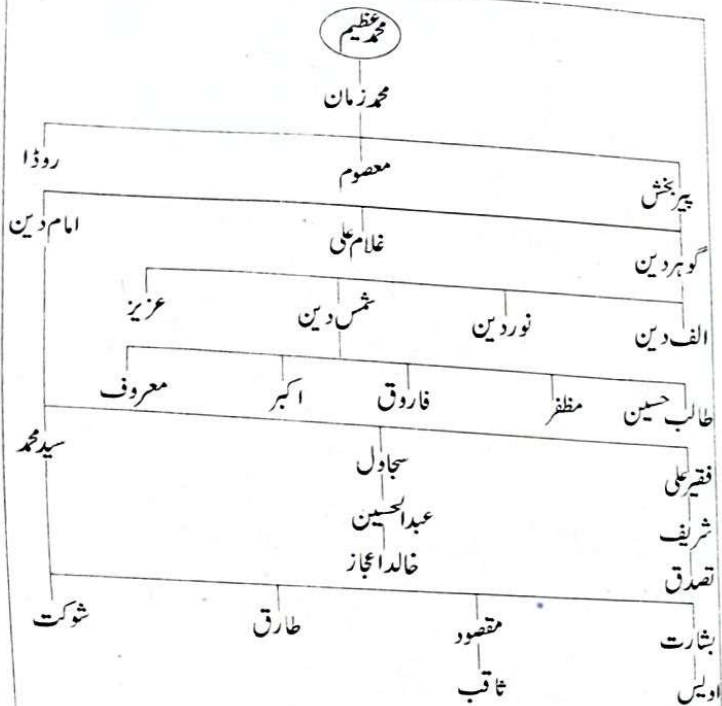 محمد عظیم
محمد زمان
پیر بخش معصوم روڈا
گوہر دین غلام علی امام دین
الف دین نور دین شمس دین عزیز
طالب حسین مظفر فاروق اکبر معروف
فقیر علی سجاول سید محمد
شریف عبدالحسین
تصدق خالد اعجاز
بشارت مقصود طارق شوکت
اویس ثاقب